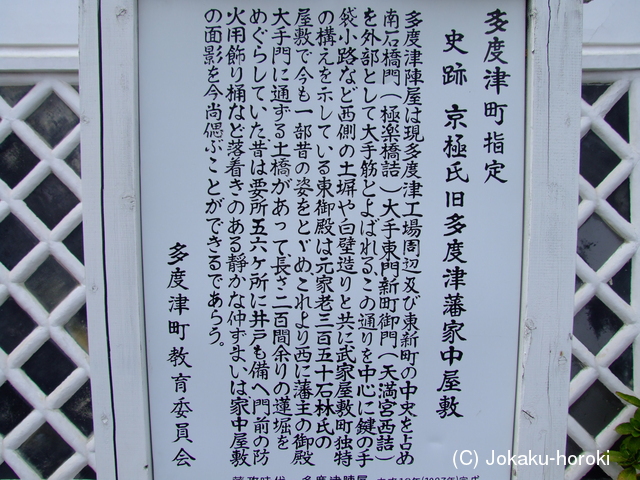 多度津町指定
史跡 京極氏旧多度津藩家中屋敷
多度津陣屋は現多度津工場周辺及び東新町の中央を占め
南石橋門(極楽橋詰)大手東門新町御門(天満宮西詰)
を外部として大手筋とよばれる、この通りを中心に鍵の手
袋小路など西側の土塀や白壁造りと共に武家屋敷町独特
の構えを示している東御殿は元家老三百五十石林氏の
屋敷で今も一部昔の姿をとゞめ、これより西に藩主の御殿
大手門に通ずる土橋があって、長さ二百間余りの蓮堀を
めぐらしていた昔は要所五六ヶ所に井戸も備へ門前の防
火用飾り桶など落着きのある静かな仲ずまいは家中屋敷
の面影を今尚偲ぶことができるであらう。
多度津町教育委員会
(C) Jokaku-horoki